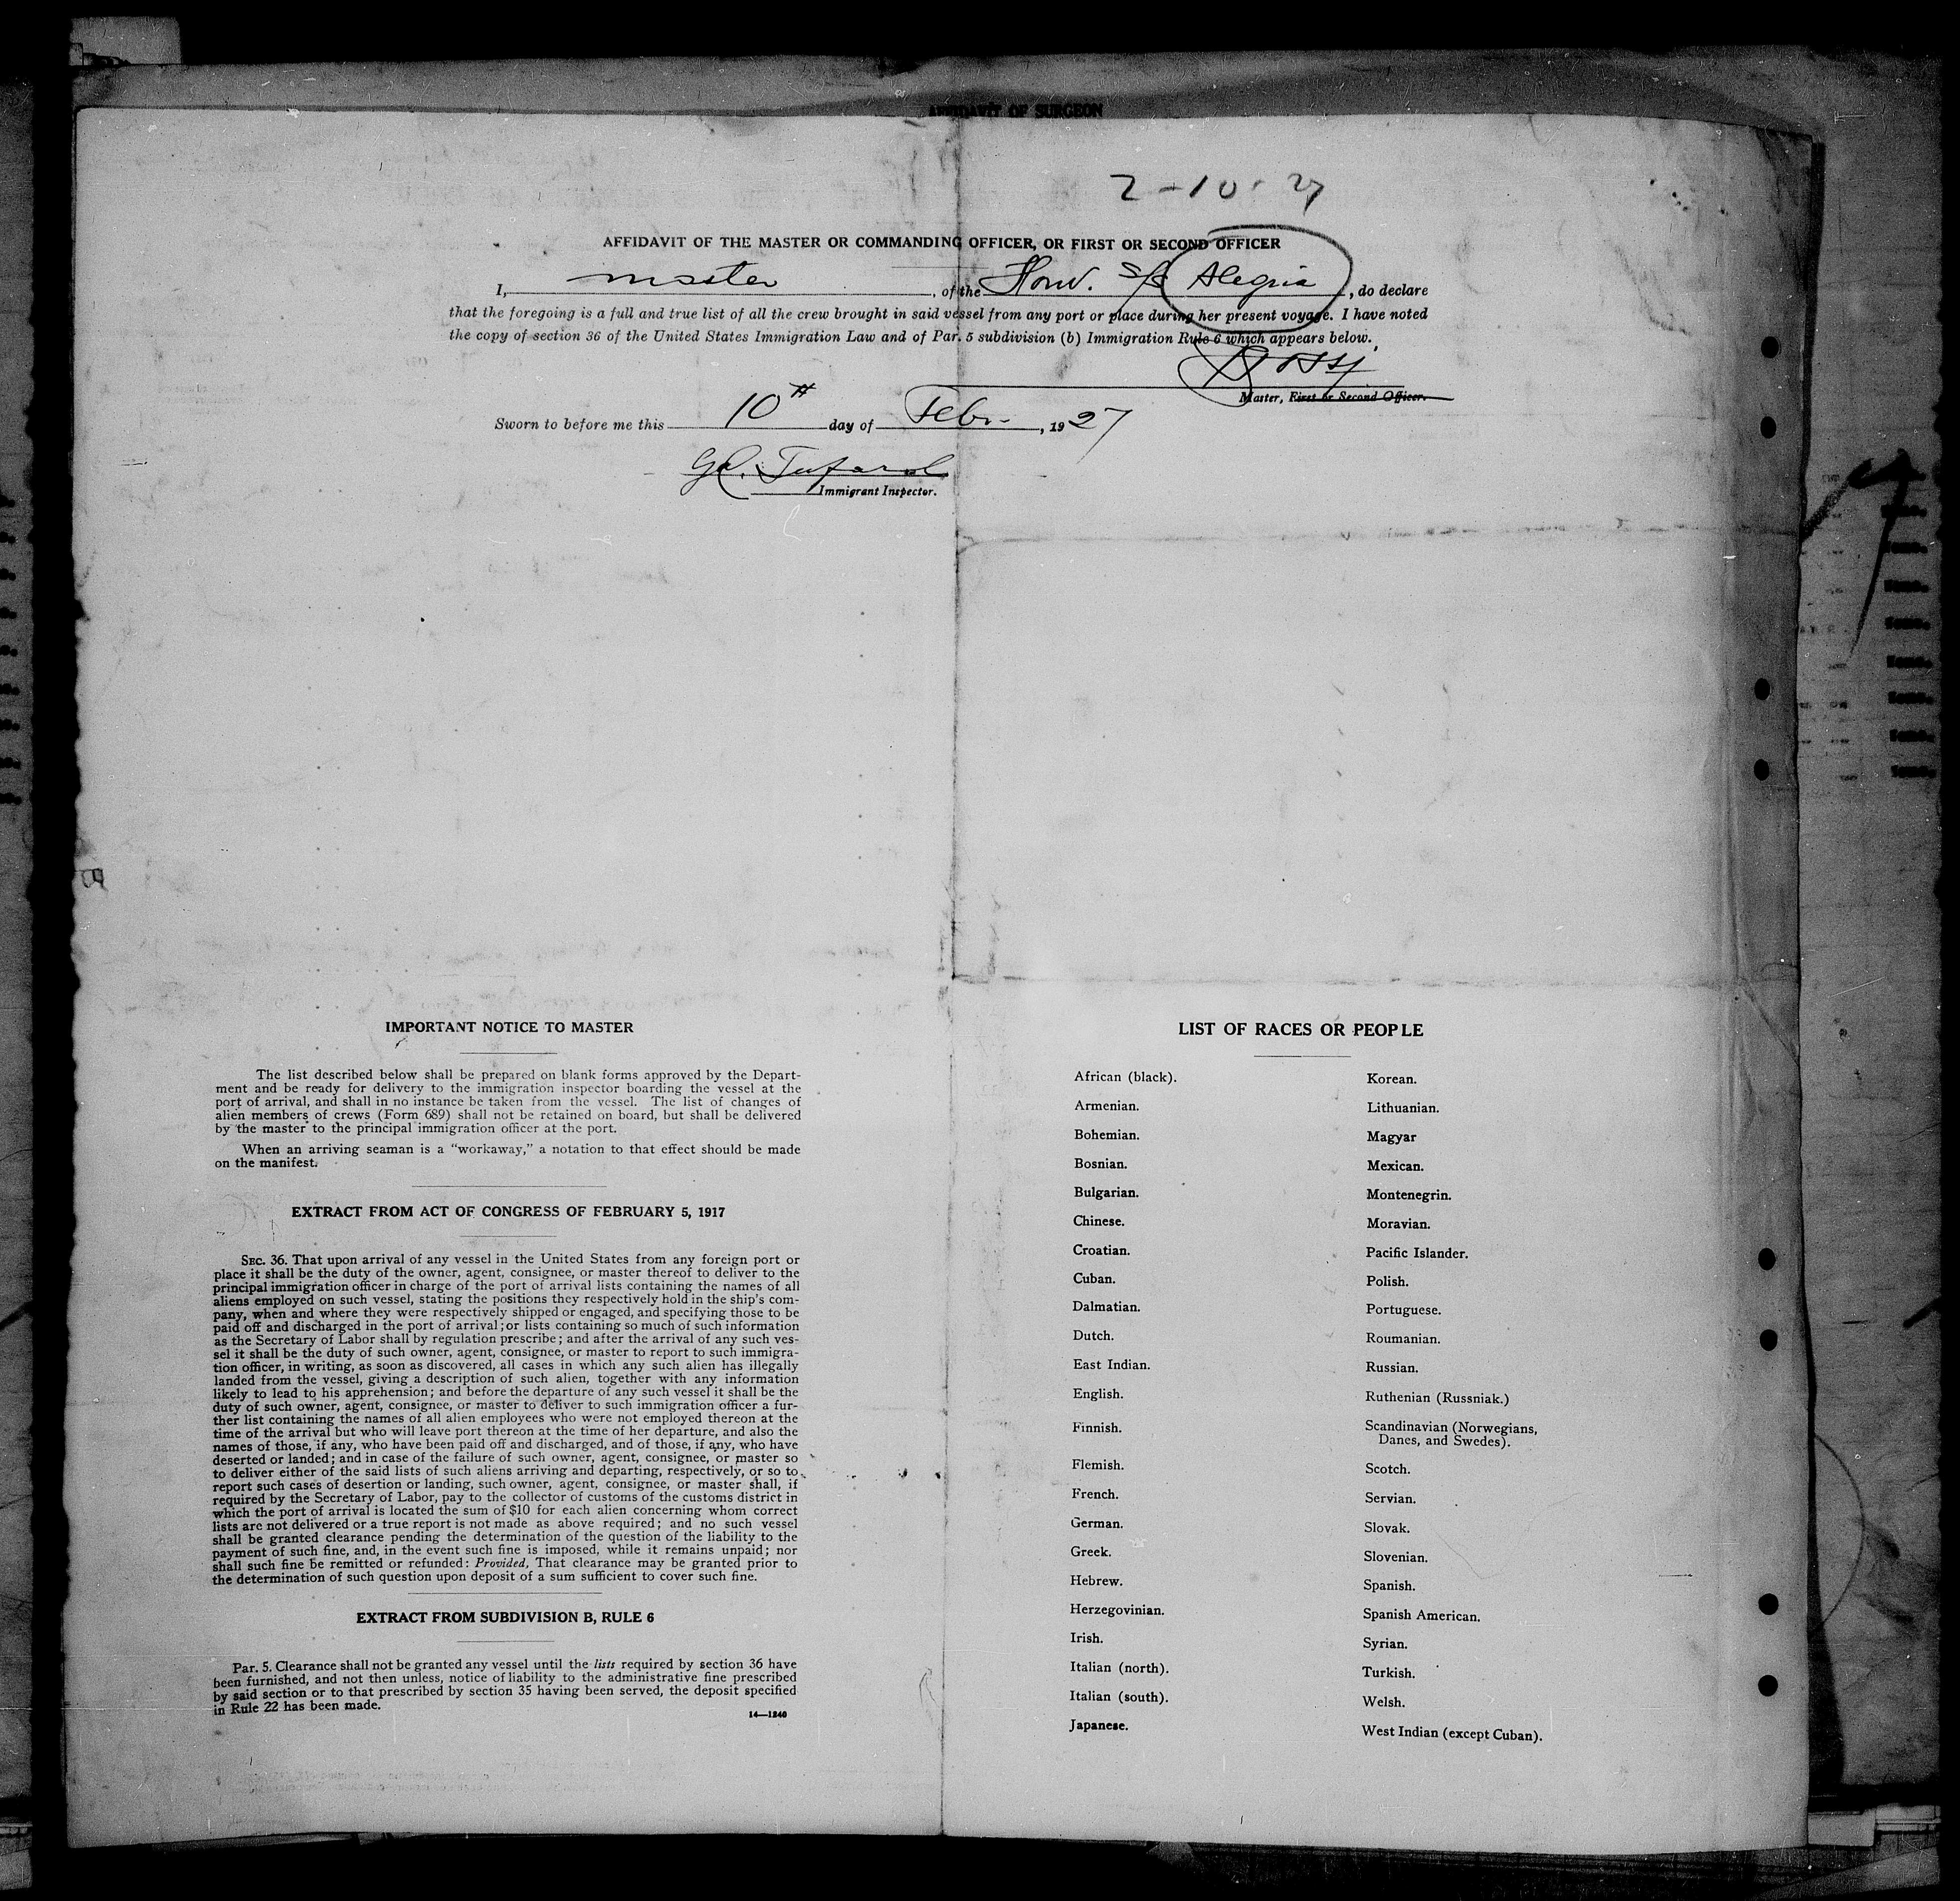 AFFIDAVIT OF SURGEON
2-10-27
AFFIDAVIT OF THE MASTER OR COMMANDING OFFICER, OR FIRST OR SECOND OFFICER
I, master, of the Hond. S/S Alegria, do declare
that the foregoing is a full and true list of all the crew brought in said vessel from any port or place during her present voyage. I have noted
the copy of section 36 of the United States Immigration Law and of Par. 5 subdivision (b) Immigration Rule 6 which appears below.
Master, First or Second Officer.
Sworn to before me this 10th day of Febr-, 1927
Immigrant Inspector.
IMPORTANT NOTICE TO MASTER
The list described below shall be prepared on blank forms approved by the Depart-
ment and be ready for delivery to the immigration inspector boarding the vessel at the
port of arrival, and shall in no instance be taken from the vessel. The list of changes of
alien members of crews (Form 689) shall not be retained on board, but shall be delivered
by the master to the principal immigration officer at the port.
When an arriving seaman is a “workaway,” a notation to that effect should be made
on the manifest.
EXTRACT FROM ACT OF CONGRESS OF FEBRUARY 5, 1917
SEC. 36. That upon arrival of any vessel in the United States from any foreign port or
place it shall be the duty of the owner, agent, consignee, or master thereof to deliver to the
principal immigration officer in charge of the port of arrival lists containing the names of all
aliens employed on such vessel, stating the positions they respectively hold in the ship's com-
pany, when and where they were respectively shipped or engaged, and specifying those to be
paid off and discharged in the port of arrival; or lists containing so much of such information
as the Secretary of Labor shall by regulation prescribe; and after the arrival of any such ves-
sel it shall be the duty of such owner, agent, consignee, or master to report to such immigra-
tion officer, in writing, as soon as discovered, all cases in which any such alien has illegally
landed from the vessel, giving a description of such alien, together with any information
likely to lead to his apprehension; and before the departure of any such vessel it shall be the
duty of such owner, agent, consignee, or master to deliver to such immigration officer a fur-
ther list containing the names of all alien employees who were not employed thereon at the
time of the arrival but who will leave port thereon at the time of her departure, and also the
names of those, if any, who have been paid off and discharged, and of those, if any, who have
deserted or landed; and in case of the failure of such owner, agent, consignee, or master so
to deliver either of the said lists of such aliens arriving and departing, respectively, or so to
report such cases of desertion or landing, such owner, agent, consignee, or master shall, if
required by the Secretary of Labor, pay to the collector of customs of the customs district in
which the port of arrival is located the sum of $10 for each alien concerning whom correct
lists are not delivered or a true report is not made as above required; and no such vessel
shall be granted clearance pending the determination of the question of the liability to the
payment of such fine, and, in the event such fine is imposed, while it remains unpaid; nor
shall such fine be remitted or refunded: Provided, That clearance may be granted prior to
the determination of such question upon deposit of a sum sufficient to cover such fine.
EXTRACT FROM SUBDIVISION B, RULE 6
Par. 5. Clearance shall not be granted any vessel until the lists required by section 36 have
been furnished, and not then unless, notice of liability to the administrative fine prescribed
by said section or to that prescribed by section 35 having been served, the deposit specified
in Rule 22 has been made.
14—1240
LIST OF RACES OR PEOPLE
African (black).
Armenian.
Bohemian.
Bosnian.
Bulgarian.
Chinese.
Croatian.
Cuban.
Dalmatian.
Dutch.
East Indian.
English.
Finnish.
Flemish.
French.
German.
Greek.
Hebrew.
Herzegovinian.
Irish.
Italian (north).
Italian (south).
Japanese.
Korean.
Lithuanian.
Magyar
Mexican.
Montenegrin.
Moravian.
Pacific Islander.
Polish.
Portuguese.
Roumanian.
Russian.
Ruthenian (Russniak.)
Scandinavian (Norwegians,
Danes, and Swedes).
Scotch.
Servian.
Slovak.
Slovenian.
Spanish.
Spanish American.
Syrian.
Turkish.
Welsh.
West Indian (except Cuban).